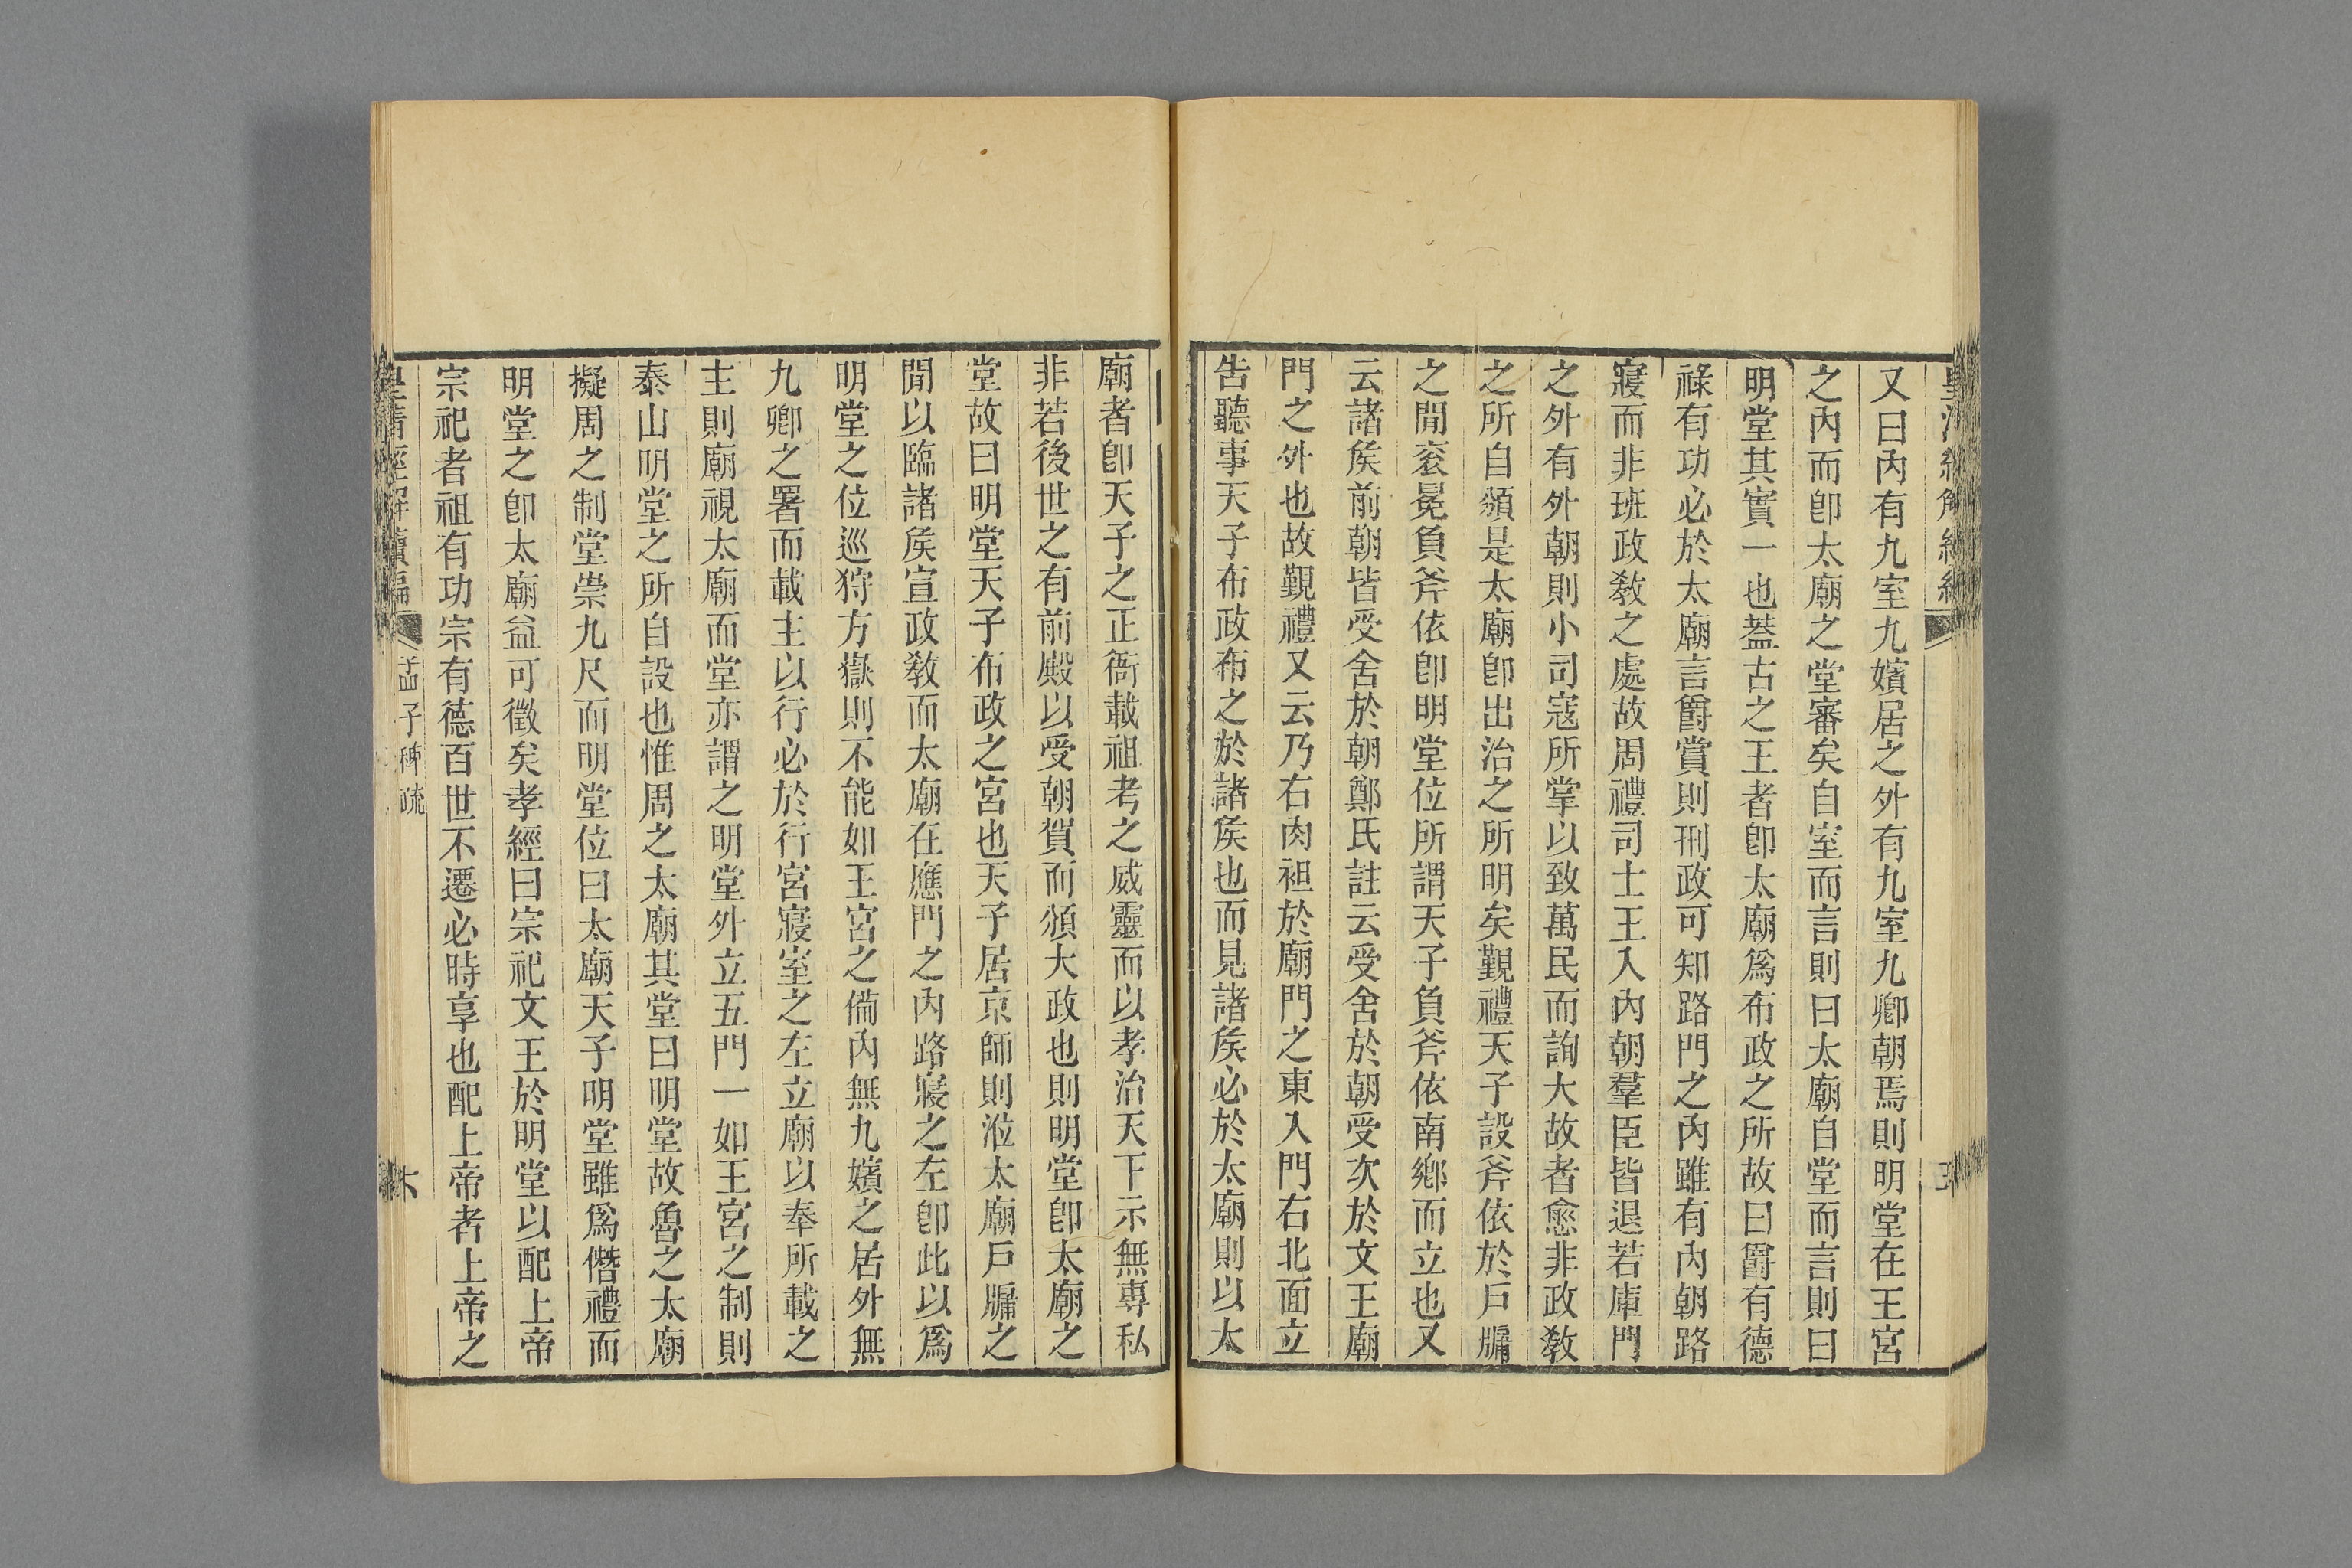 又曰內有九室九嬪居之外有九室九卿朝焉則明堂在王宮
之內而卽太廟之堂審矣自室而言則曰太廟自堂而言則曰
明堂其實一也葢古之王者卽太廟爲布政之所故曰爵有德
祿有功必於太廟言爵賞則刑政可知路門之內雖有內朝路
寢而非班政敎之處故周禮司士王入內朝羣臣皆退若庫門
之外有外朝則小司寇所掌以致萬民而詢大故者愈非政敎
之所自頒是太廟卽出治之所明矣覲禮天子設斧依於戶牖
之閒衮冕負斧依卽明堂位所謂天子負斧依南鄉而立也又
云諸矦前朝皆受舍於朝鄭氏註云受舍於朝受次於文王廟
門之外也故覲禮又云乃右肉袒於廟門之東入門右北面立
告聽事天子布政布之於諸矦也而見諸矦必於太廟則以太
廟者卽天子之正衙載祖考之威靈而以孝治天下示無專私
非若後世之有前殿以受朝賀而頒大政也則明堂卽太廟之
堂故曰明堂天子布政之宮也天子居京師則涖太廟戶牖之
閒以臨諸矦宣政敎而太廟在應門之內路寢之左卽此以爲
明堂之位巡狩方嶽則不能如王宮之備內無九嬪之居外無
九卿之署而載主以行必於行宮寢室之左立廟以奉所載之
主則廟視太廟而堂亦謂之明堂外立五門一如王宮之制則
泰山明堂之所自設也惟周之太廟其堂曰明堂故魯之太廟
擬周之制堂崇九尺而明堂位曰太廟天子明堂雖爲僭禮而
明堂之卽太廟益可徵矣孝經曰宗祀文王於明堂以配上帝
宗祀者祖有功宗有德百世不遷必時享也配上帝者上帝之
皇淸經解續編
孟子稗疏
六